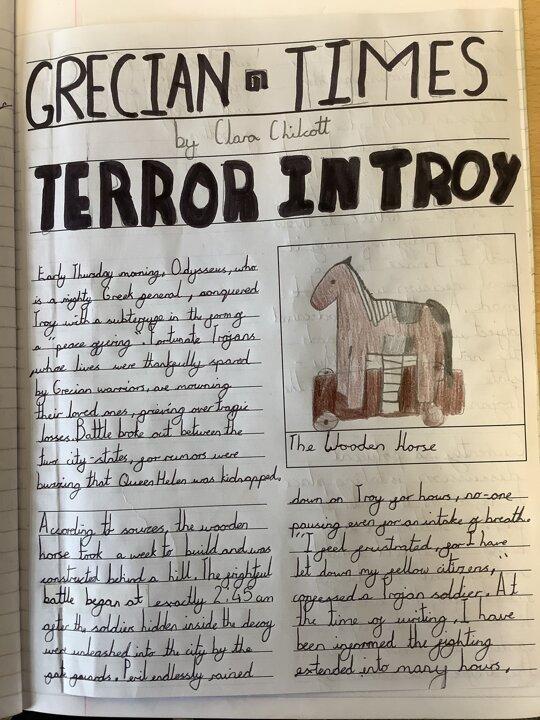 GRECIAN TIMES
by Clara Chilcott
TERROR IN TROY
Early Thursday morning, Odysseus, who
is a mighty Greek general, conquered
Troy with a subterfuge in the form of
a "peace offering". Fortunate Trojans
whose lives were thankfully spared
by Grecian warriors, are mourning
their loved ones, grieving over tragic
losses. Battle broke out between the
two city-states, for rumors were
buzzing that Queen Helen was kidnapped.
According to sources, the wooden
horse took a week to build and was
constructed behind a hill. The frightful
battle began at exactly 2:45 am
after the soldiers hidden inside the decoy
were unleashed into the city by the
gate guards. Peril endlessly rained
The Wooden Horse
down on Troy for hours, no-one
pausing even for an intake of breath.
"I feel frustrated, for I have
let down my fellow citizens,"
confessed a Trojan soldier. At
the time of writing, I have
been informed the fighting
extended into many hours,